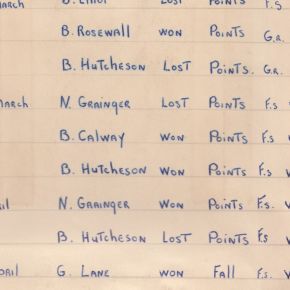 LOST POINTS F.S
B. ROSEWALL WON POINTS G.R.
B. HUTCHESON LOST POINTS. G.R.
MARCH N. GRAINGER LOST POINTS F.S
B. CALWAY WON POINTS F.S
B. HUTCHESON WON POINTS F.S
N. GRAINGER WON POINTS F.S.
B. HUTCHESON LOST POINTS F.S
G. LANE WON FALL F.S